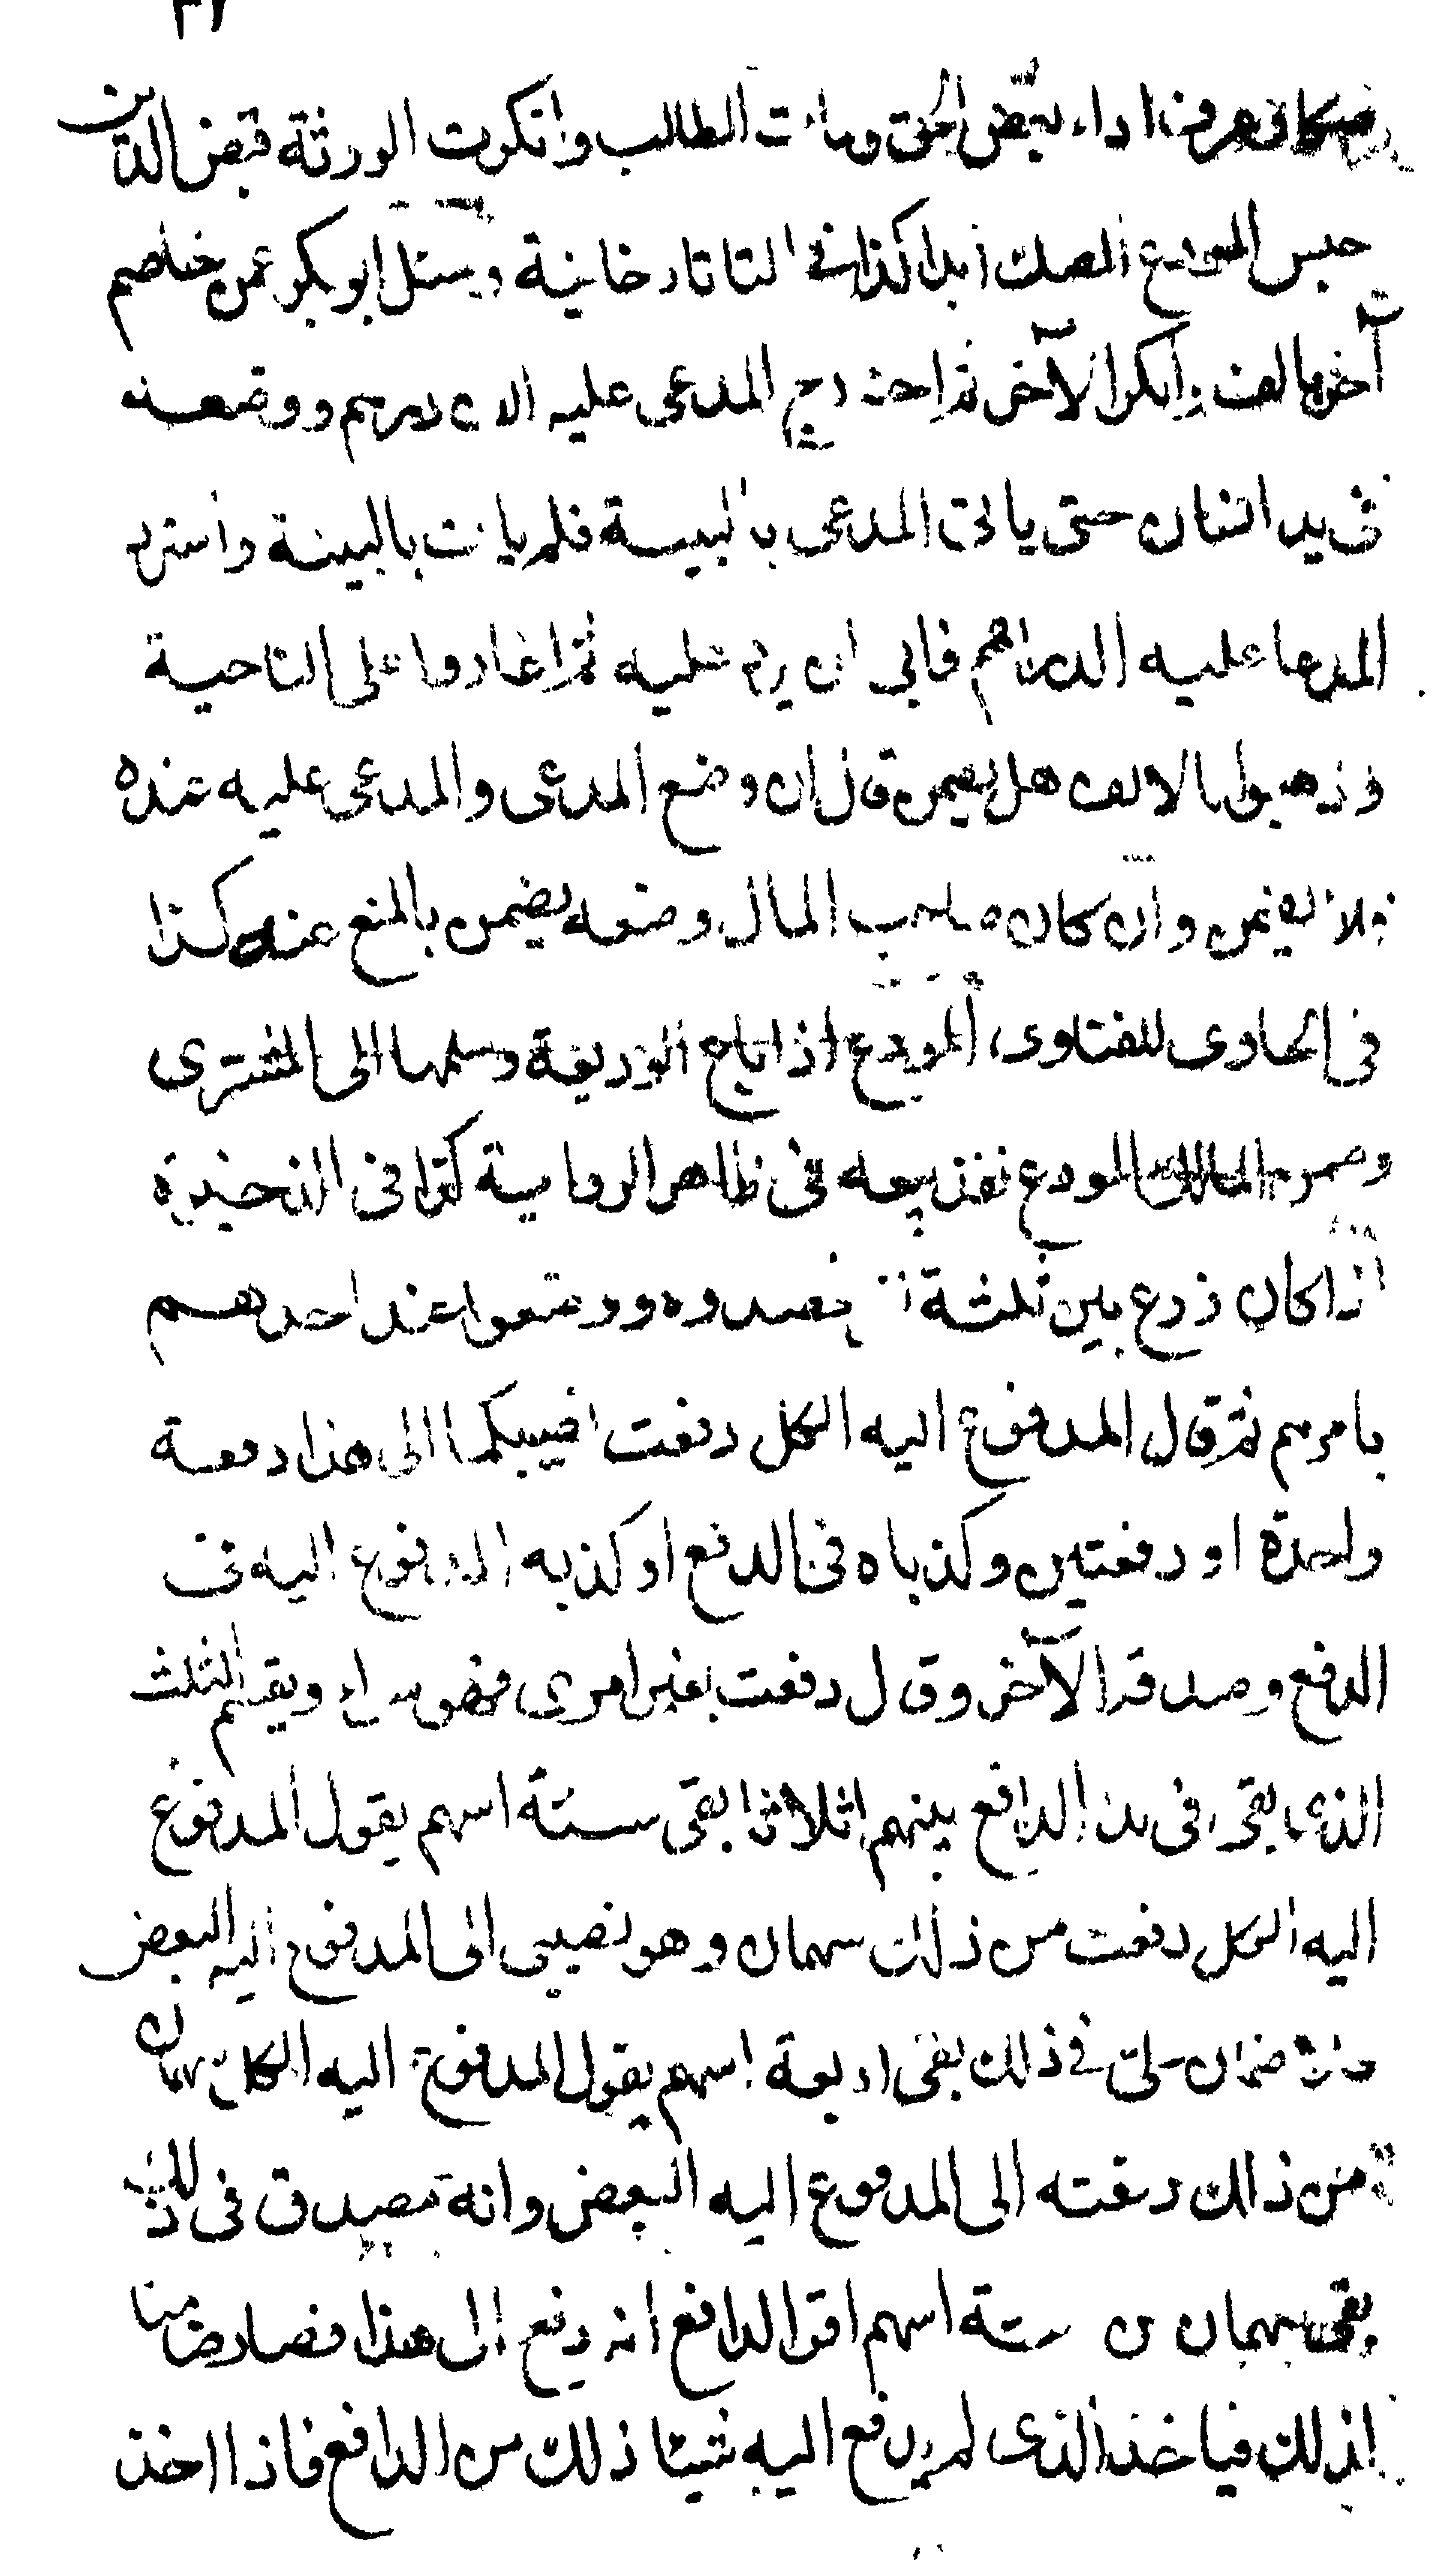 صكا فعرف اداء بعض الحق ومات الطالب وانكرت الورثة قبض الدين
حبس المودع الصك ابدا كذا فى التاتارخانية وسئل ابو بكر عمن خاصم
آخر بالف وانكر الآخر ثم اخرج المدعى عليه الف درهم ووضعه
فى يد انسان حتى ياتى المدعى بالبينة فلم يات بالبينة واسترد
المدعا عليه الدراهم فابى ان يرد عليه ثم اغاروا على الناحية
وذهبوا بالالف هل يضمن قال ان وضع المدعى والمدعى عليه عنده
فلا يضمن وان كان صاحب المال وضعه يضمن بالمنع عنه كذا
فى الحاوى للفتاوى المودع اذا باع الوديعة وسلمها الى المشترى
وضمن المالك المودع نفذ بيعه فى ظاهر الرواية كذا فى الذخيرة
اذا كان زرع بين ثلثة فحصدوه ووضعوا عند احدهم
بامرهم ثم قال المدفوع اليه الكل دفعت نصيبكما الى هذا دفعة
واحدة او دفعتين وكذباه فى الدفع او كذبه المدفوع اليه فى
الدفع وصدقه الآخر وقال دفعت بغير امرى فهو سواء ويقسم الثلث
الذى بقى فى يد الدافع بينهم اثلاثا بقى ستة اسهم يقول المدفوع
اليه الكل دفعت من ذلك سهمان وهو نصيبى الى المدفوع اليه البعض
فلا ضمان على فى ذلك بقى اربعة اسهم يقول المدفوع اليه الكل سهمان
من ذلك دفعته الى المدفوع اليه البعض وانه مصدق فى ذلك
بقى سهمان من ستة اسهم اقر الدافع انه دفع الى هذا فصار ضامنا
لذلك فياخذ الذى لم يدفع اليه شيئا ذلك من الدافع فاذا اخذ